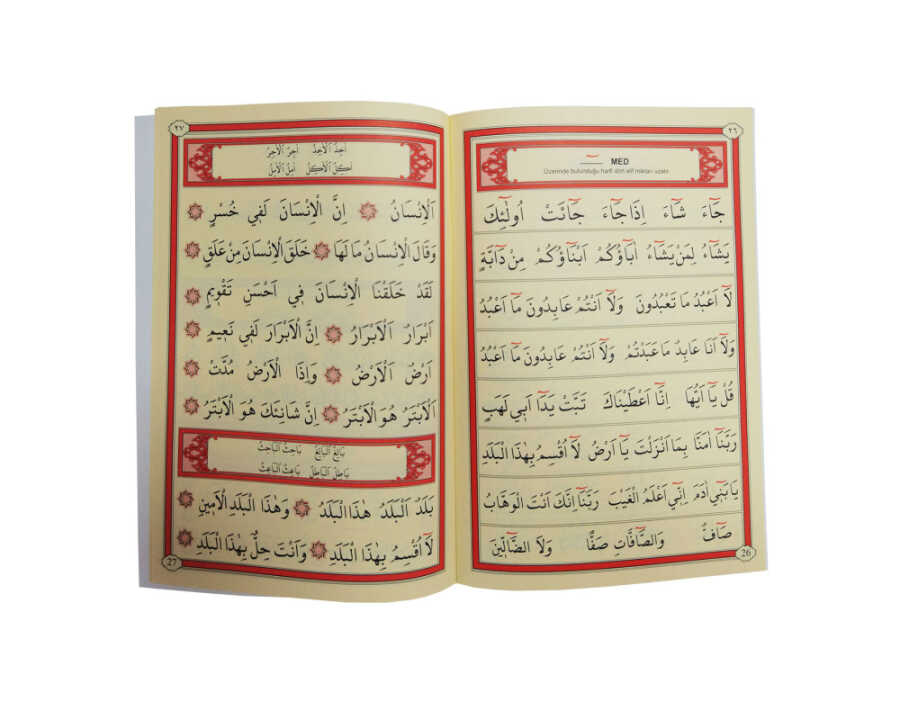 ٢٦
MED
Üzerinde bulunduğu harfi dört elif miktarı uzatır.
جَٓاءَ شَٓاءَ اِذَا جَٓاءَ جَٓائَتْ اُولٰٓئِكَ
يَشَٓاءُ لِمَنْ يَشَٓاءُ اٰبَٓاؤُكُمْ اَبْنَٓاؤُكُمْ مِنْ دَٓابَّةٍ
لَٓا اَعْبُدُ مَا تَعْبُدُونَ وَلَٓا اَنْتُمْ عَابِدُونَ مَٓا اَعْبُدُ
وَلَٓا اَنَا عَابِدٌ مَا عَبَدْتُمْ وَلَٓا اَنْتُمْ عَابِدُونَ مَٓا اَعْبُدُ
قُلْ يَٓا اَيُّهَا اِنَّٓا اَعْطَيْنَاكَ تَبَّتْ يَدَٓا اَبِي لَهَبٍ
رَبَّنَٓا اٰمَنَّا بِمَٓا اَنْزَلْتَ يَٓا اَرْضُ لَٓا اُقْسِمُ بِهٰذَا الْبَلَدِ
يَا بَنِٓي اٰدَمَ اِنِّٓي اَعْلَمُ الْغَيْبَ رَبَّنَٓا اِنَّكَ اَنْتَ الْوَهَّابُ
صَٓافٌّ وَالصَّٓافَّاتِ صَفًّا وَلَا الضَّٓالِّينَ
26
٢٧
اَخِذُ اَلْاَخِذُ اَخِرُ اَلْاَخِرُ
اَكِلُ اَلْاَكِلُ اَمِلُ اَلْاَمِلُ
اَلْاِنْسَانُ اِنَّ الْاِنْسَانَ لَفِي خُسْرٍ
وَقَالَ الْاِنْسَانُ مَا لَهَا خَلَقَ الْاِنْسَانَ مِنْ عَلَقٍ
لَقَدْ خَلَقْنَا الْاِنْسَانَ فِي اَحْسَنِ تَقْوِيمٍ
اَبْرَارُ اَلْاَبْرَارُ اِنَّ الْاَبْرَارَ لَفِي نَعِيمٍ
اَرْضُ اَلْاَرْضُ وَاِذَا الْاَرْضُ مُدَّتْ
اَلْاَبْتَرُ هُوَ الْاَبْتَرُ اِنَّ شَانِئَكَ هُوَ الْاَبْتَرُ
بَالِغُ اَلْبَالِغُ بَاحِثُ اَلْبَاحِثُ
بَاطِلُ اَلْبَاطِلُ بَاعِثُ اَلْبَاعِثُ
بَلَدُ اَلْبَلَدُ هٰذَا الْبَلَدُ وَهٰذَا الْبَلَدِ الْاَمِينِ
لَٓا اُقْسِمُ بِهٰذَا الْبَلَدِ وَاَنْتَ حِلٌّ بِهٰذَا الْبَلَدِ
27